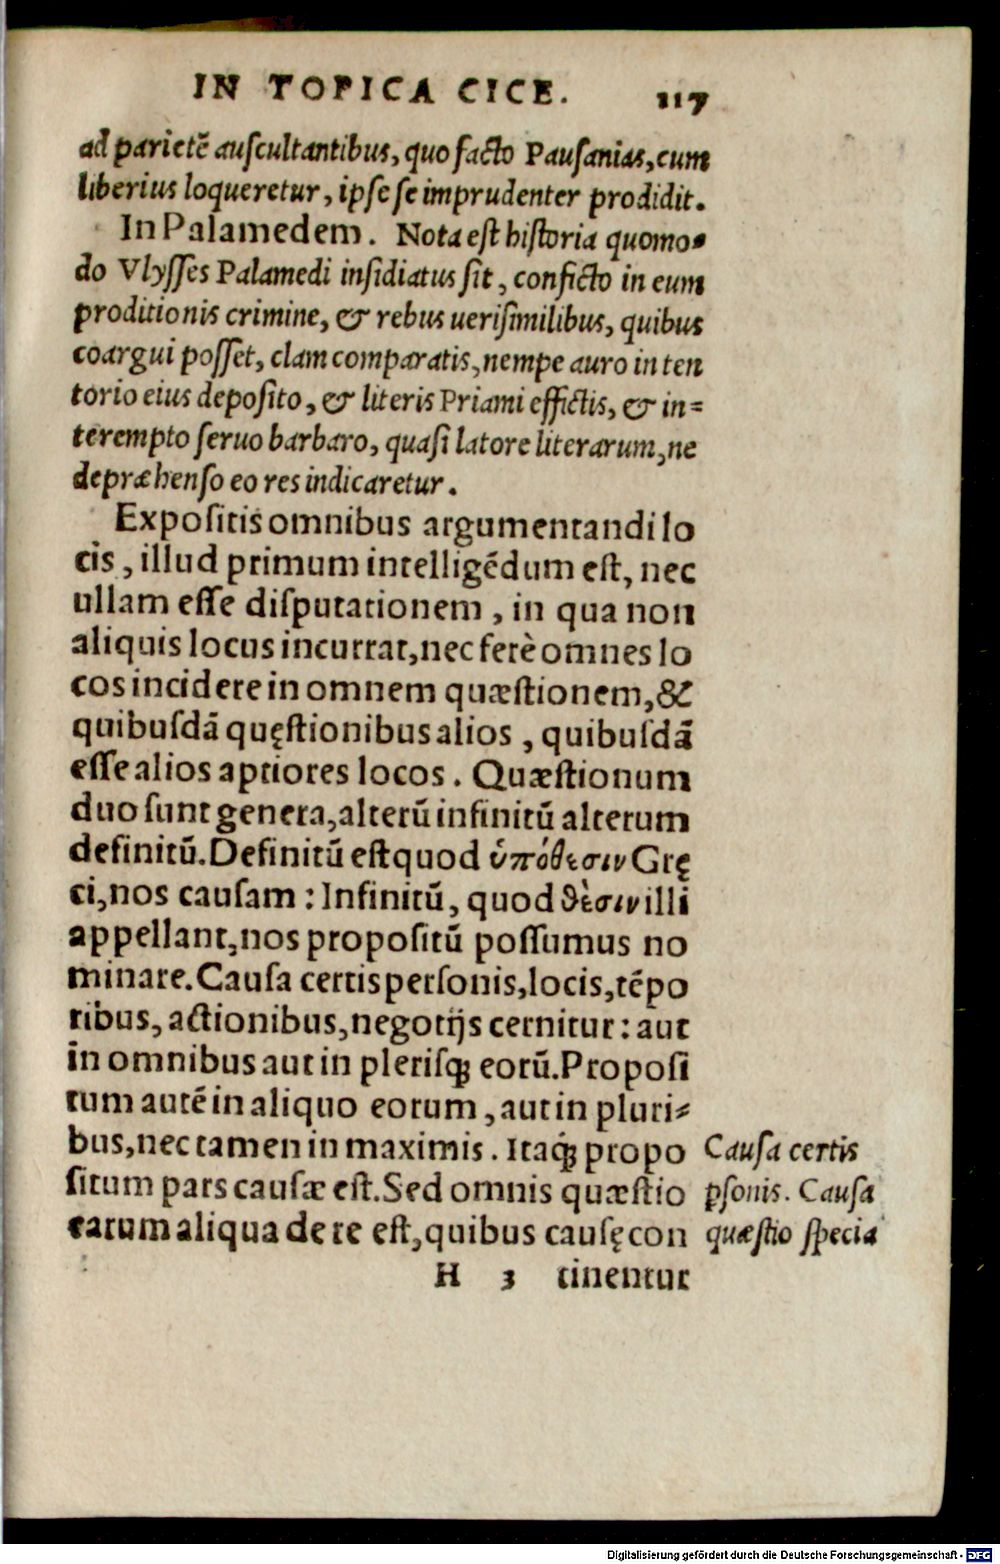 IN TOPICA CICE. 117
ad parietẽ auſcultantibus, quo facto Pauſanias, cum
liberius loqueretur, ipſe ſe imprudenter prodidit.
In Palamedem. Nota est hiſtoria quomo-
do Vlyſſes Palamedi inſidiatus ſit, conficto in eum
proditionis crimine, & rebus ueriſimilibus, quibus
coargui poſſet, clam comparatis, nempe auro in ten
torio eius depoſito, & literis Priami effictis, & in=
terempto ſeruo barbaro, quaſi latore literarum, ne
depræhenſo eo res indicaretur.
Expoſitis omnibus argumentandi lo
cis, illud primum intelligẽdum eſt, nec
ullam eſſe diſputationem, in qua non
aliquis locus incurrat, nec ferè omnes lo
cos incidere in omnem quæſtionem, &
quibuſdã quęſtionibus alios, quibuſdã
eſſe alios aptiores locos. Quæſtionum
duo ſunt genera, alterũ infinitũ alterum
definitũ. Definitũ eſt quod ὑπόθεσιν Grę
ci, nos cauſam: Infinitũ, quod θὲσιν illi
appellant, nos propoſitũ poſſumus no
minare. Cauſa certis perſonis, locis, tẽpo
ribus, actionibus, negotijs cernitur: aut
in omnibus aut in pleriſq; eorũ. Propoſi
tum autẽ in aliquo eorum, aut in pluri-
bus, nec tamen in maximis. Itaq; propo
ſitum pars cauſæ eſt. Sed omnis quæſtio
earum aliqua de re eſt, quibus cauſę con
H 3 tinentur
Cauſa certis
pſonis. Cauſa
quæſtio ſpecia
Digitalisierung gefördert durch die Deutsche Forschungsgemeinschaft - DFG